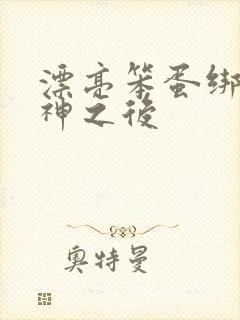 漂亮笨蛋绑
神之後
奥特曼